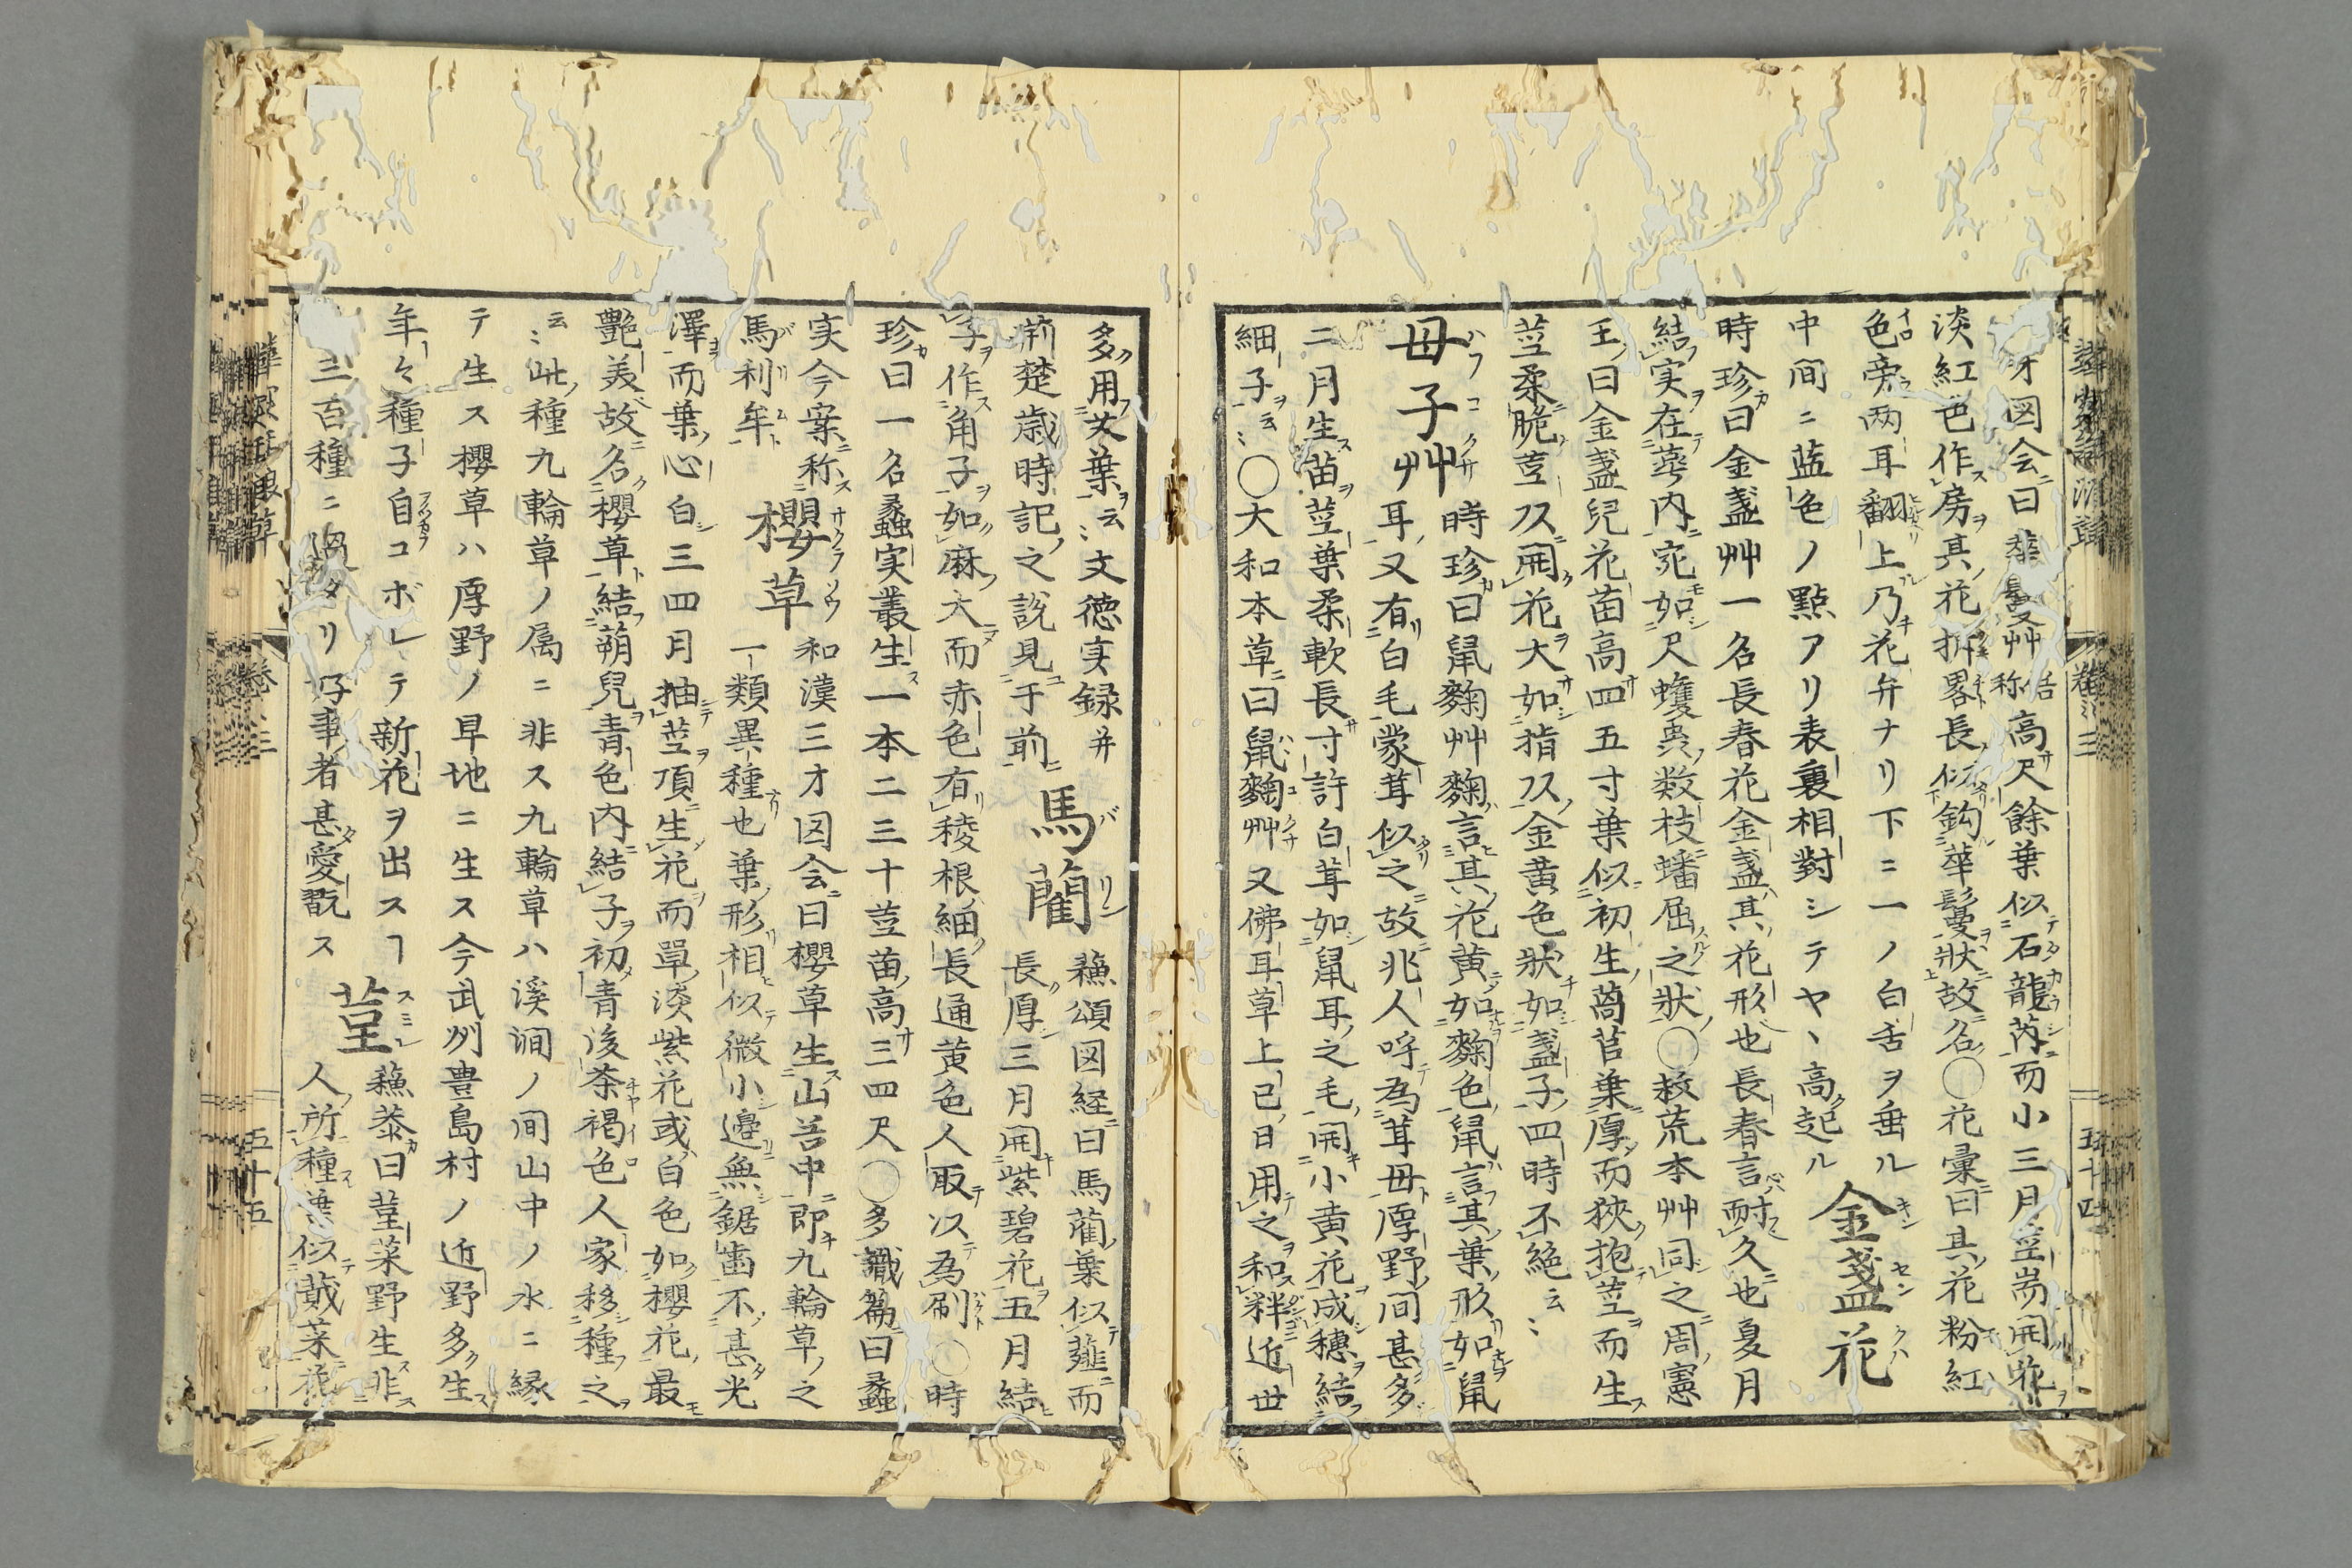 才図会ニ曰華鬘艸俗称高サ尺餘葉似石龍芮而小三月莖耑開花
淡紅色作房其花拆畧長似鈎華鬘狀故名◯花彙曰其花粉紅
色旁两耳翻上乃花弁ナリ下ニ一ノ白舌ヲ垂ル
中間ニ蓝色ノ點アリ表裏相對シテヤヽ高起ル 金盞花
時珍曰金盞艸一名長春花金盞其花形也長春言耐久也夏月
結実在萼内宛如尺蠖虫数枝蟠屈之狀◯救荒本艸同之周憲
王曰金盞兒花苗高四五寸葉似初生萵苣葉厚而狹抱莖而生
莖柔脆莖頭開花大如指頭金黄色狀如盞子四時不絶云〻
母子艸 時珍曰鼠麴艸麴言其花黄如麴色鼠言其葉形如鼠
耳又有白毛蒙茸似之故北人呼為茸母厚野間甚多
二月生苗莖葉柔軟長寸許白茸如鼠耳之毛開小黄花成穗結
細子云〻◯大和本草曰鼠麴艸又佛耳草上巳日用之和粹近世
多用艾葉云〻文徳実録并
荊楚歳時記之説見于前 馬藺 蘓頌図経曰馬藺葉似薤而
長厚三月開紫碧花五月結
子作角子如麻大而赤色有稜根細長通黄色人取以為刷◯時
珍曰一名蠡実叢生一本二三十莖苗高三四尺◯多識篇曰蠡
実今案称馬利牟 櫻草 和漢三才図会曰櫻草生山谷中即九輪草之
一類異種也葉形相似微小邊無鋸歯不甚光
澤而葉心白三四月抽莖頂生花而單淡紫花或白色如櫻花最
艶美故名櫻草結蒴兒青色内結子初青後茶褐色人家移種之
云〻此種九輪草ノ属ニ非ス九輪草ハ溪澗ノ间山中ノ水ニ縁
テ生ス櫻草ハ厚野ノ早地ニ生ス今武州豊島村ノ近野多生
年々種子自コボレテ新花ヲ出スヿ
三百種ニ過タリ好事者甚愛翫ス 菫 蘓恭曰菫菜野生非
人所種葉似蕺菜花
巻三
五十四
巻三
五十五